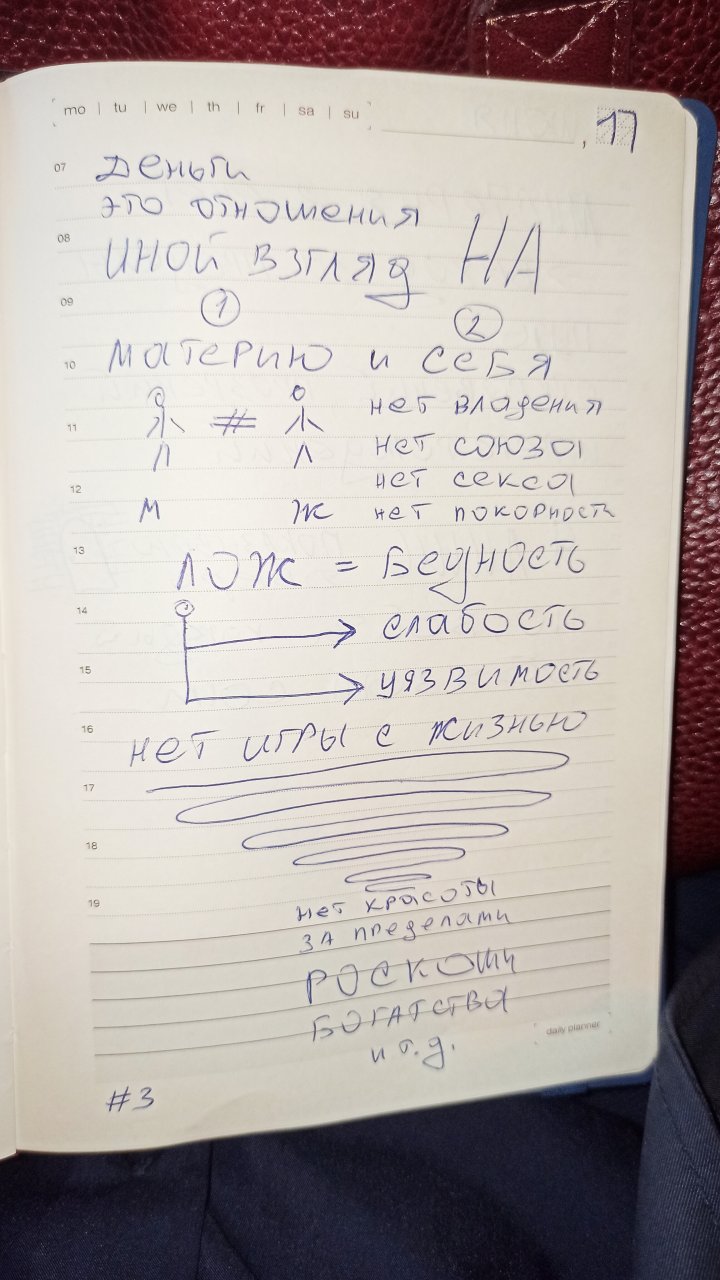 mo | tu | we | th | fr | sa | su
, 17
07
деньги
это отношения
08
иной взгляд НА
09
1 2
10
материю и себя
нет владения
11
#
нет союза
нет секса
12
М Ж нет покорности
13
ЛОЖ = Бедность
14
слабость
15
уязвимость
16
нет игры с жизнью
17
18
19
нет красоты
за пределами
РОСКОШИ
БОГАТСТВА
и т.д.
daily planner
#3